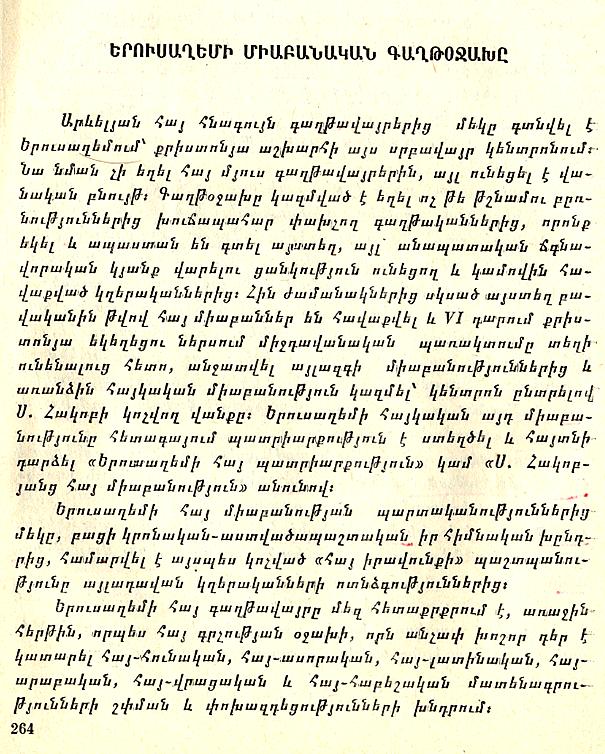 ԵՐՈՒՍԱՂԵՄԻ ՄԻԱԲԱՆԱԿԱՆ ԳԱՂԹՕՋԱԽԸ
Արևելյան հայ հնագույն գաղթավայրերից մեկը գտնվել է
Երուսաղեմում՝ քրիստոնյա աշխարհի այս սրբավայր կենտրոնում։
Նա նման չի եղել հայ մյուս գաղթավայրերին, այլ ունեցել է վա-
նական բնույթ։ Գաղթօջախը կազմված է եղել ոչ թե թշնամու բըռ-
նություններից խուճապահար փախչող գաղթականներից, որոնք
եկել և ապաստան են գտել այստեղ, այլ անապատական ճգնա-
վորական կյանք վարելու ցանկություն ունեցող և կամովին հա-
վաքված կղերականներից։ Հին ժամանակներից սկսած այստեղ բա-
վականին թվով հայ միաբաններ են հավաքվել և VI դարում քրիս-
տոնյա եկեղեցու ներսում միջդավանական պառակտումը տեղի
ունենալուց հետո, անջատվել այլազգի միաբանություններից և
առանձին հայկական միաբանություն կազմել՝ կենտրոն ընտրելով
Ս. Հակոբի կոչվող վանքը։ Երուսաղեմի հայկական այդ միաբա-
նությունը հետագայում պատրիարքություն է ստեղծել և հայտնի
դարձել «Երուսաղեմի հայ պատրիարքություն» կամ «Ս. Հակոբ-
յանց հայ միաբանություն» անունով։
Երուսաղեմի հայ միաբանության պարտականություններից
մեկը, բացի կրոնական-աստվածապաշտական իր հիմնական խընդ-
րից, համարվել է այսպես կոչված «հայ իրավունքի» պաշտպանու-
թյունը այլադավան կղերականների ոտնձգություններից։
Երուսաղեմի հայ գաղթավայրը մեզ հետաքրքրում է, առաջին
հերթին, որպես հայ գրչության օջախի, որն անչափ խոշոր դեր է
կատարել հայ-հունական, հայ-ասորական, հայ-լատինական, հայ-
արաբական, հայ-վրացական և հայ-հաբեշական մատենագրու-
թյունների շփման և փոխազդեցությունների խնդրում։
264